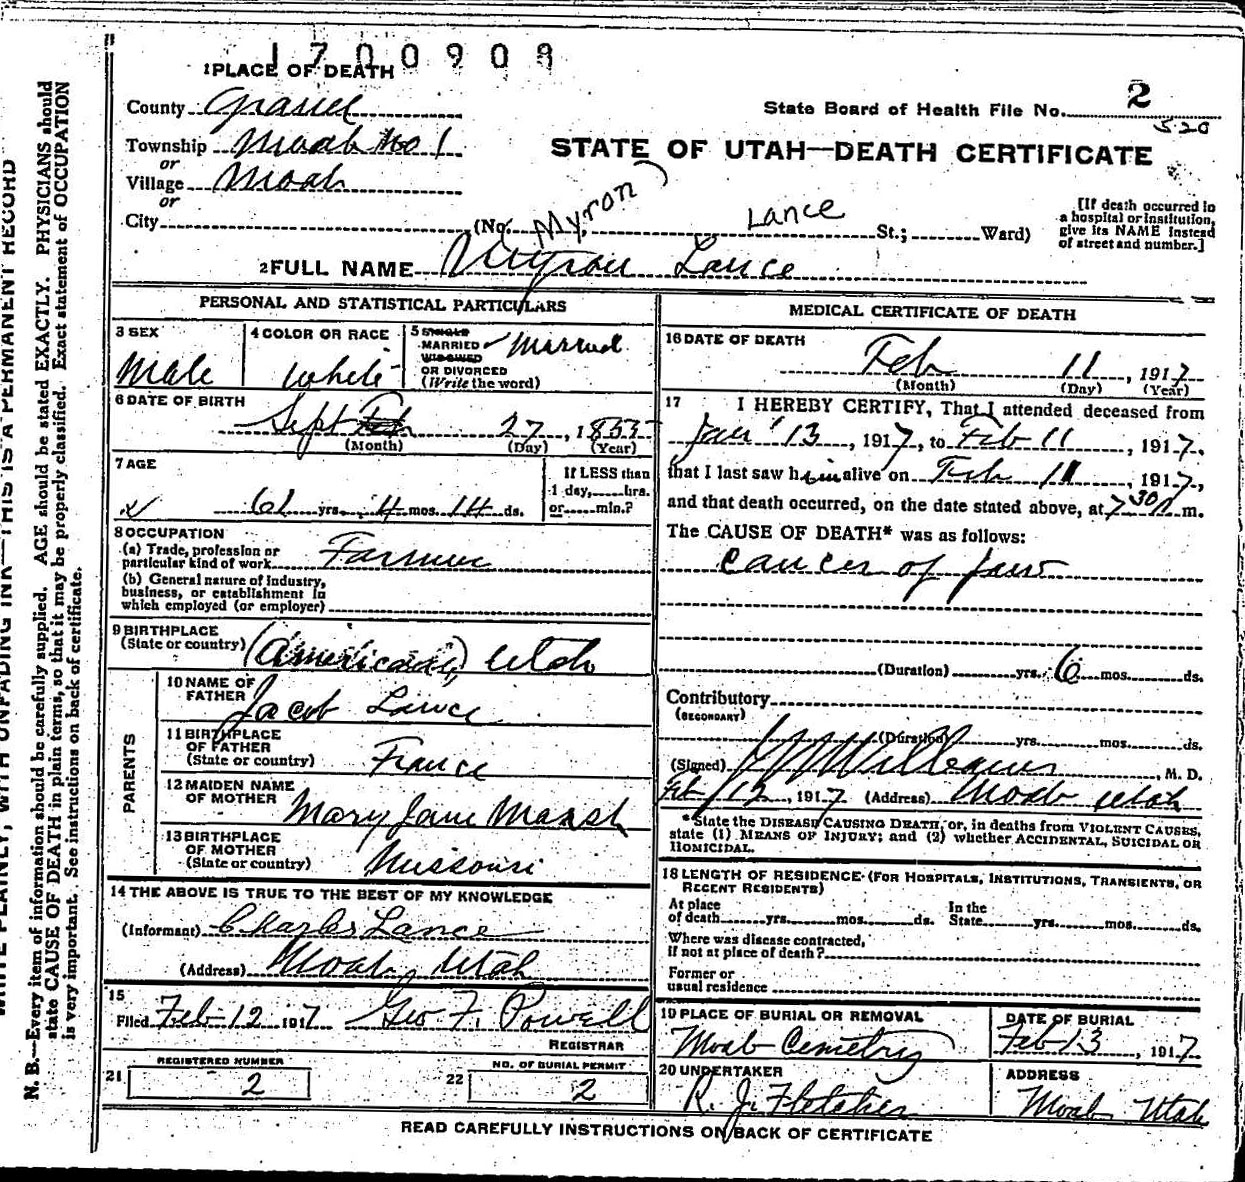 1700909
1 PLACE OF DEATH
County Grand
State Board of Health File No. 2
520
Township Moab No 1
or
Village Moab
or
STATE OF UTAH—DEATH CERTIFICATE
City (No. St.; Ward)
Myron Lance
[If death occurred in
a hospital or institution,
give its NAME instead
of street and number.]
2 FULL NAME Myron Lance
PERSONAL AND STATISTICAL PARTICULARS
3 SEX
Male
4 COLOR OR RACE
White
5 SINGLE
MARRIED
WIDOWED
OR DIVORCED
(Write the word)
Married
6 DATE OF BIRTH
Sept 27, 1855
(Month) (Day) (Year)
7 AGE
61 yrs. 4 mos. 14 ds.
If LESS than
1 day, hrs.
or min.?
8 OCCUPATION
(a) Trade, profession or
particular kind of work Farmer
(b) General nature of industry,
business, or establishment in
which employed (or employer)
9 BIRTHPLACE
(State or country) (American) Utah
PARENTS
10 NAME OF
FATHER Jacob Lance
11 BIRTHPLACE
OF FATHER
(State or country) France
12 MAIDEN NAME
OF MOTHER Mary Jane Marsh
13 BIRTHPLACE
OF MOTHER
(State or country) Missouri
14 THE ABOVE IS TRUE TO THE BEST OF MY KNOWLEDGE
(Informant) Charles Lance
(Address) Moab, Utah
15
Filed Feb 12 1917 Geo F. Powell
REGISTRAR
REGISTERED NUMBER
21 2
NO. OF BURIAL PERMIT
22 2
MEDICAL CERTIFICATE OF DEATH
16 DATE OF DEATH
Feb 11, 1917
(Month) (Day) (Year)
17 I HEREBY CERTIFY, That I attended deceased from
Jan 13, 1917, to Feb 11, 1917,
that I last saw him alive on Feb 11, 1917,
and that death occurred, on the date stated above, at 7 30 m.
The CAUSE OF DEATH* was as follows:
Cancer of Jaw
(Duration) yrs. 6 mos. ds.
Contributory
(SECONDARY)
(Duration) yrs. mos. ds.
(Signed) Williams, M. D.
Feb 12, 1917 (Address) Moab Utah
*State the DISEASE CAUSING DEATH, or, in deaths from VIOLENT CAUSES,
state (1) MEANS OF INJURY; and (2) whether ACCIDENTAL, SUICIDAL OR
HOMICIDAL.
18 LENGTH OF RESIDENCE (FOR HOSPITALS, INSTITUTIONS, TRANSIENTS, OR
RECENT RESIDENTS)
At place In the
of death yrs. mos. ds. State yrs. mos. ds.
Where was disease contracted,
if not at place of death?
Former or
usual residence
19 PLACE OF BURIAL OR REMOVAL
Moab Cemetry
DATE OF BURIAL
Feb 13, 1917
20 UNDERTAKER
R. J. Fletcher
ADDRESS
Moab Utah
READ CAREFULLY INSTRUCTIONS ON BACK OF CERTIFICATE
WRITE PLAINLY, WITH UNFADING INK—THIS IS A PERMANENT RECORD
N. B.—Every item of information should be carefully supplied. AGE should be stated EXACTLY. PHYSICIANS should
state CAUSE OF DEATH in plain terms, so that it may be properly classified. Exact statement of OCCUPATION
is very important. See instructions on back of certificate.